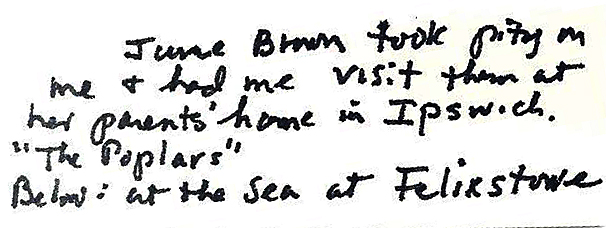 June Brown took pity on
me & had me visit them at
her parents' home in Ipswich.
"The Poplars"
Below: at the sea at Felixstowe